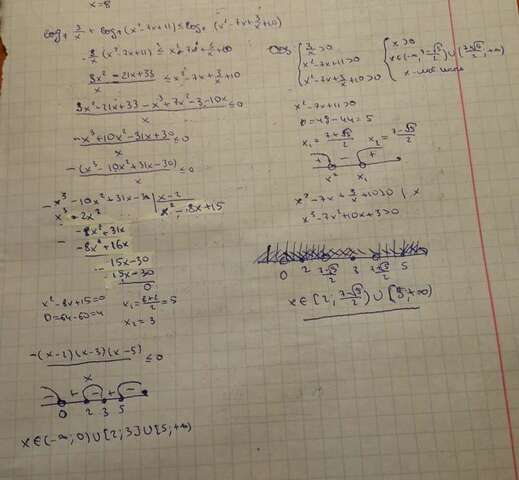 x=8
log₇ 3/x + log₇ (x²-7x+11) ≤ log₇ (x²-7x+3/x+10)
3/x (x²-7x+11) ≤ x²-7x+3/x+10
3x²-21x+33/x ≤ x²-7x+3/x+10
3x²-21x+33-x³+7x²-3-10x/x ≤0
-x³+10x²-31x+30/x ≤0
-(x³-10x²+31x-30)/x ≤0
x³-10x²+31x-30 | x-2
x³-2x² | x²-8x+15
-8x²+31x
-8x²+16x
15x-30
15x-30
0
x²-8x+15=0 x₁=8+2/2=5
D=64-60=4
x₂=3
-(x-2)(x-3)(x-5)/x ≤0
- + - + -
0 2 3 5
x∈(-∞;0)∪[2;3]∪[5;+∞)
{3/x>0 {x>0
x²-7x+11>0 x∈(-∞;7-√5/2)∪(7+√5/2;+∞)
x²-7x+3/x+10>0
x²-7x+11>0
D=49-44=5
x₁=7+√5/2 x₂=7-√5/2
+ - +
x² x₁
x²-7x+3/x+10>0 | x
x³-7x²+10x+3>0
0 2 7-√5/2 3 7+√5/2 5
x∈[2;7-√5/2)∪[5;+∞)